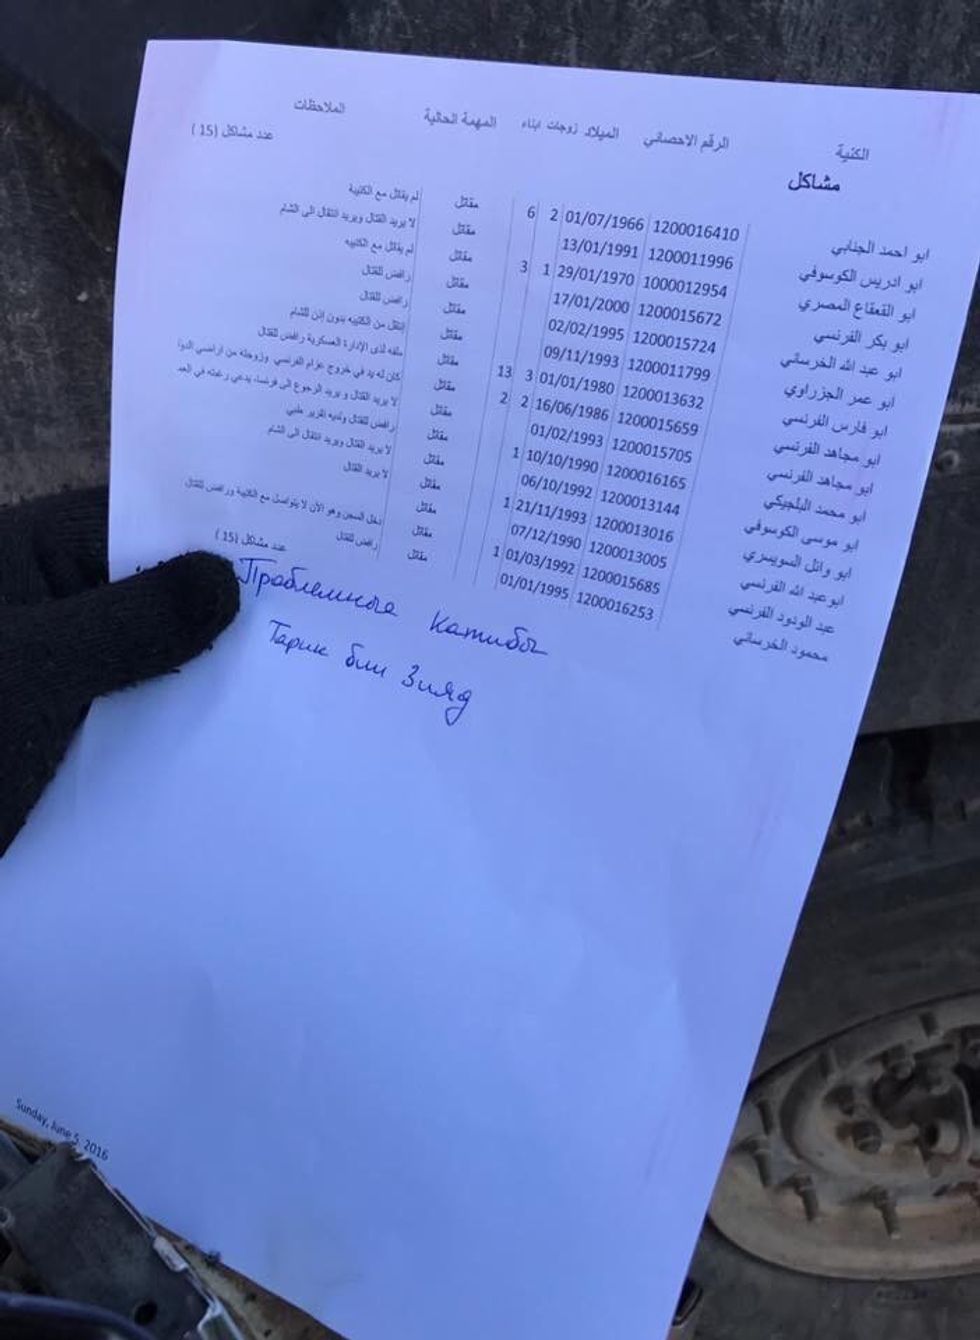 الكنية الرقم الاحصائي الميلاد زوجات ابناء المهمة الحالية الملاحظات
مشاكل عدد مشاكل (15)
ابو احمد الجنابي 1200016410 01/07/1966 2 6 مقاتل لم يقاتل مع الكتيبة
ابو ادريس الكوسوفي 1200011996 13/01/1991 مقاتل لا يريد القتال ويريد انتقال الى الشام
ابو القعقاع المصري 1000012954 29/01/1970 1 3 مقاتل لم يقاتل مع الكتيبه
ابو بكر الفرنسي 1200015672 17/01/2000 مقاتل رافض للقتال
ابو عبد الله الخرساني 1200015724 02/02/1995 مقاتل رافض للقتال
ابو عمر الجزراوي 1200011799 09/11/1993 مقاتل إنتقل من الكتيبه بدون إذن للشام
ابو فارس الفرنسي 1200013632 01/01/1980 3 13 مقاتل ملفه لدى الإدارة العسكرية رافض للقتال
ابو مجاهد الفرنسي 1200015659 16/06/1986 2 2 مقاتل كان له يد في خروج عزام الفرنسي وزوجته من اراضي الدوا
ابو مجاهد الفرنسي 1200015705 01/02/1993 مقاتل لا يريد القتال و يريد الرجوع الى فرنسا، يدعي رغبته في العم
ابو محمد البلجيكي 1200016165 10/10/1990 1 مقاتل رافض للقتال ولديه تقرير طبي
ابو موسى الكوسوفي 1200013144 06/10/1992 مقاتل لا يريد القتال ويريد انتقال الى الشام
ابو وائل السويسري 1200013016 21/11/1993 1 مقاتل لا يريد القتال
ابو عبد الله الفرنسي 1200013005 07/12/1990 مقاتل
عبد الودود الفرنسي 1200015685 01/03/1992 1 مقاتل دخل السجن وهو الآن لا يتواصل مع الكتيبة ورافض للقتال
محمود الخرساني 1200016253 01/01/1995 مقاتل رافض للقتال
عدد مشاكل (15)
Проблемные Катибы
Тарик бин Зияд
Sunday, June 5, 2016